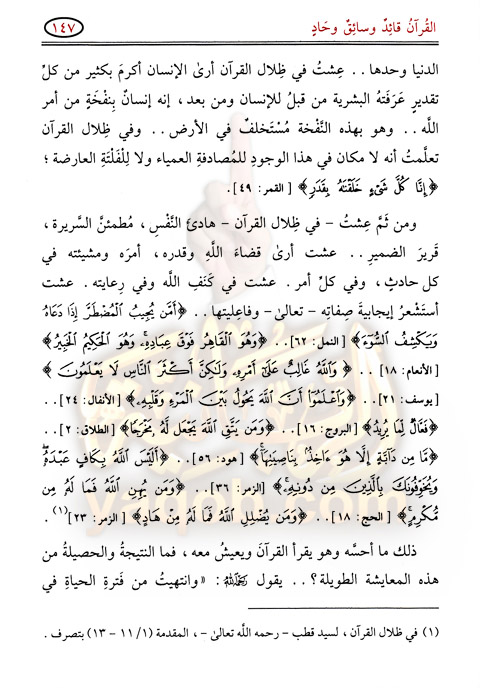 القُرآنُ قائِدٌ وسائِقٌ وحَادٍ
١٤٧
الدنيا وحدها .. عِشتُ في ظِلال القرآن أرىٰ الإنسان أكرمَ بكثير من كلّ
تقديرٍ عَرَفَتهُ البشرية من قبلُ للإنسان ومن بعد، إنه إنسانٌ بِنفْخَةٍ من أمر
اللَّه .. وهو بهذه النَّفْخة مُسْتَخلَفٌ في الأرض .. وفي ظِلال القرآن
تعلَّمتُ أنه لا مكان في هذا الوجودِ للمُصادفةِ العمياء ولا لِلْفَلْتَةِ العارضة؛
﴿إِنَّا كُلَّ شَىْءٍ خَلَقْنَٰهُ بِقَدَرٍ﴾ [القمر: ٤٩].
ومن ثَمَّ عِشتُ - في ظِلال القرآن - هادئَ النَّفْسِ، مُطمئنَّ السريرة،
قَريرَ الضمير .. عشت أرىٰ قضاءَ اللَّه وقدره، أمرَه ومشيئته في
كل حادثٍ، وفي كلِّ أمر. عشت في كَنَفِ اللَّه وفي رِعايته. عشت
أستَشْعرُ إيجابيةَ صِفاتِه - تعالىٰ - وفاعِليتها .. ﴿أَمَّن يُجِيبُ ٱلْمُضْطَرَّ إِذَا دَعَاهُ
وَيَكْشِفُ ٱلسُّوٓءَ﴾ [النمل: ٦٢] .. ﴿وَهُوَ ٱلْقَاهِرُ فَوْقَ عِبَادِهِۦ وَهُوَ ٱلْحَكِيمُ ٱلْخَبِيرُ﴾
[الأنعام: ١٨] .. ﴿وَٱللَّهُ غَالِبٌ عَلَىٰٓ أَمْرِهِۦ وَلَٰكِنَّ أَكْثَرَ ٱلنَّاسِ لَا يَعْلَمُونَ﴾
[يوسف: ٢١] .. ﴿وَٱعْلَمُوٓا۟ أَنَّ ٱللَّهَ يَحُولُ بَيْنَ ٱلْمَرْءِ وَقَلْبِهِۦ﴾ [الأنفال: ٢٤] ..
﴿فَعَّالٌ لِّمَا يُرِيدُ﴾ [البروج: ١٦] .. ﴿وَمَن يَتَّقِ ٱللَّهَ يَجْعَل لَّهُۥ مَخْرَجًا﴾ [الطلاق: ٢] ..
﴿مَّا مِن دَآبَّةٍ إِلَّا هُوَ ءَاخِذٌۢ بِنَاصِيَتِهَآ﴾ [هود: ٥٦] .. ﴿أَلَيْسَ ٱللَّهُ بِكَافٍ عَبْدَهُۥ
وَيُخَوِّفُونَكَ بِٱلَّذِينَ مِن دُونِهِۦ﴾ [الزمر: ٣٦] .. ﴿وَمَن يُهِنِ ٱللَّهُ فَمَا لَهُۥ مِن
مُّكْرِمٍ﴾ [الحج: ١٨] .. ﴿وَمَن يُضْلِلِ ٱللَّهُ فَمَا لَهُۥ مِنْ هَادٍ﴾ [الزمر: ٢٣](١).
ذلك ما أحسَّه وهو يقرأ القرآنَ ويعيشُ معه، فما النتيجةُ والحصيلة من
هذه المعايشة الطويلة؟ .. يقول رَحِمَهُ اللَّهُ: «وانتهيتُ من فَترةِ الحياة في
(١) في ظلال القرآن، لسيد قطب - رحمه اللَّه تعالىٰ -، المقدمة (١/١١ - ١٣) بتصرف.